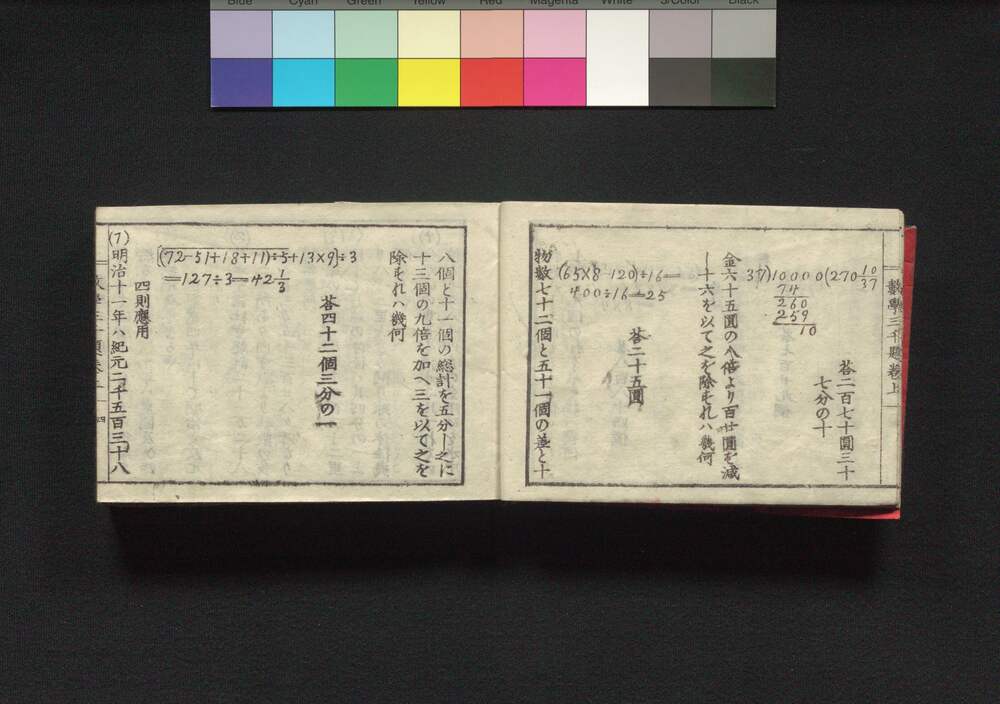 Blue Cyan Green Yellow Red Magenta White 3/Color Black
數學三千題卷上
37)10000(270 10/37
74
260
259
10
荅二百七十圓三十
七分の十
金六十五圓の八倍より百廿圓を減
し十六を以て之を除すれハ幾何
(65×8-120)÷16=
400÷16=25
荅二十五圓
物數七十二個と五十一個の差と十
八個と十一個の総計を五分し之に
十三個の九倍を加へ三を以て之を
除すれハ幾何
[(72-51+18+11)÷5+13×9]÷3
=127÷3=42 1/3
荅四十二個三分の一
四則應用
(7)明治十一年ハ紀元二千五百三十八
四